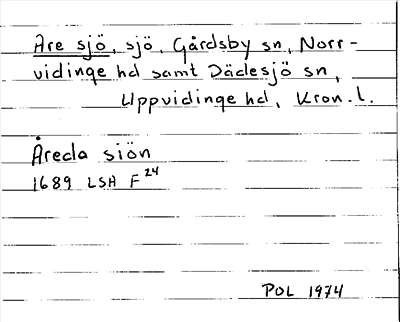 Åre sjö, sjö, Gårdsby sn, Norr-
vidinge hd samt Dädesjö sn,
Uppvidinge hd, Kron. l.
Åreda siön
1689 LSA F 24
POL 1974